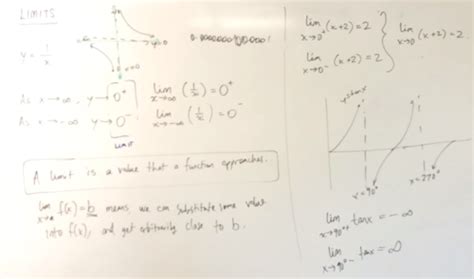 LIMITS
y = 1/x
y=0
x=0
0.00000000000001
As x→∞, y→0⁺
lim x→∞ (1/x) = 0⁺
As x→-∞, y→0⁻
lim x→-∞ (1/x) = 0⁻
Limit
A limit is a value that a function approaches.
lim x→a f(x) = b means, we can substitute some value
into f(x), and get arbitrarily close to b.
lim x→0⁺ (x+2) = 2
lim x→0⁻ (x+2) = 2
lim x→0 (x+2) = 2
y=tanx
x=90°
x=270°
lim x→90°⁺ tanx = -∞
lim x→90°⁻ tanx = ∞